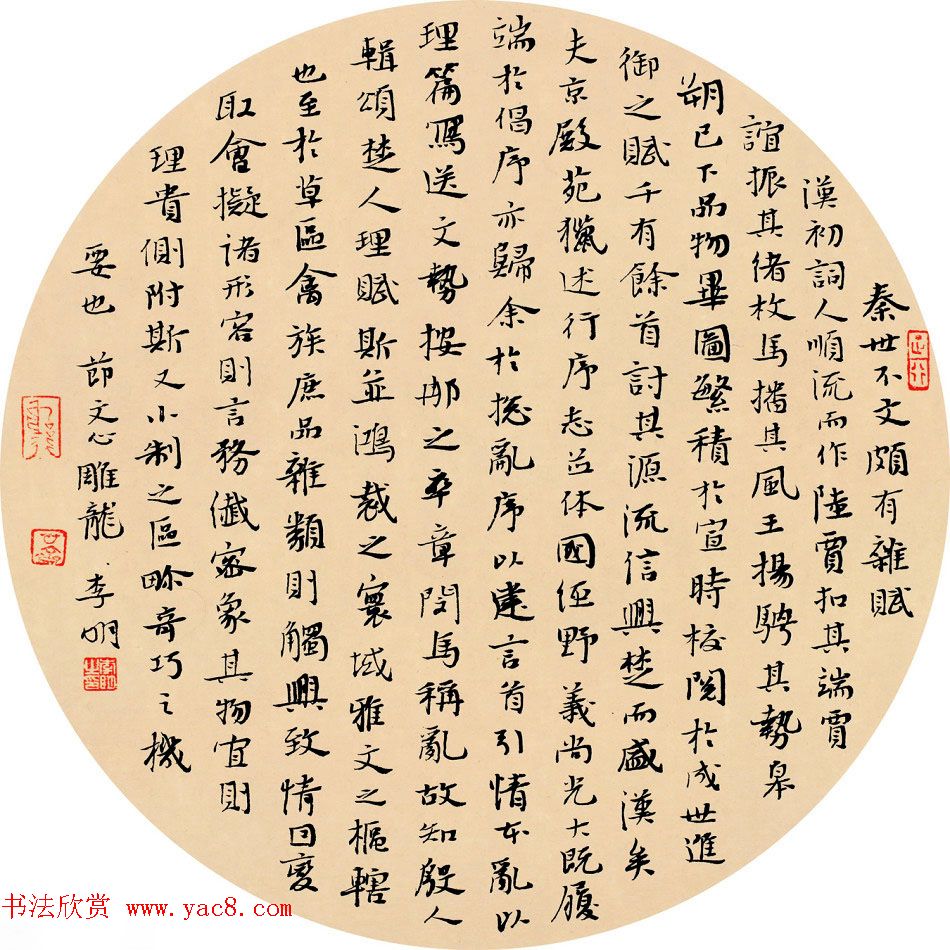 秦世不文頗有雜賦
漢初詞人順流而作陸賈扣其端賈
誼振其緒枚馬播其風王揚騁其勢皋
朔已下品物畢圖繁積於宣時校閱於成世進
御之賦千有餘首討其源流信興楚而盛漢矣
夫京殿苑獵述行序志並体國經野義尚光大既履
端於倡序亦歸余於總亂序以建言首引情本亂以
理篇寫送文勢按那之卒章閔馬稱亂故知殷人
輯頌楚人理賦斯並鴻裁之寰域雅文之樞轄
也至於草區禽族庶品雜類則觸興致情因變
取會擬諸形容則言務纖密象其物宜則
理貴側附斯又小制之區畛奇巧之機
要也 節文心雕龍 李明
书法欣赏 www.yac8.com